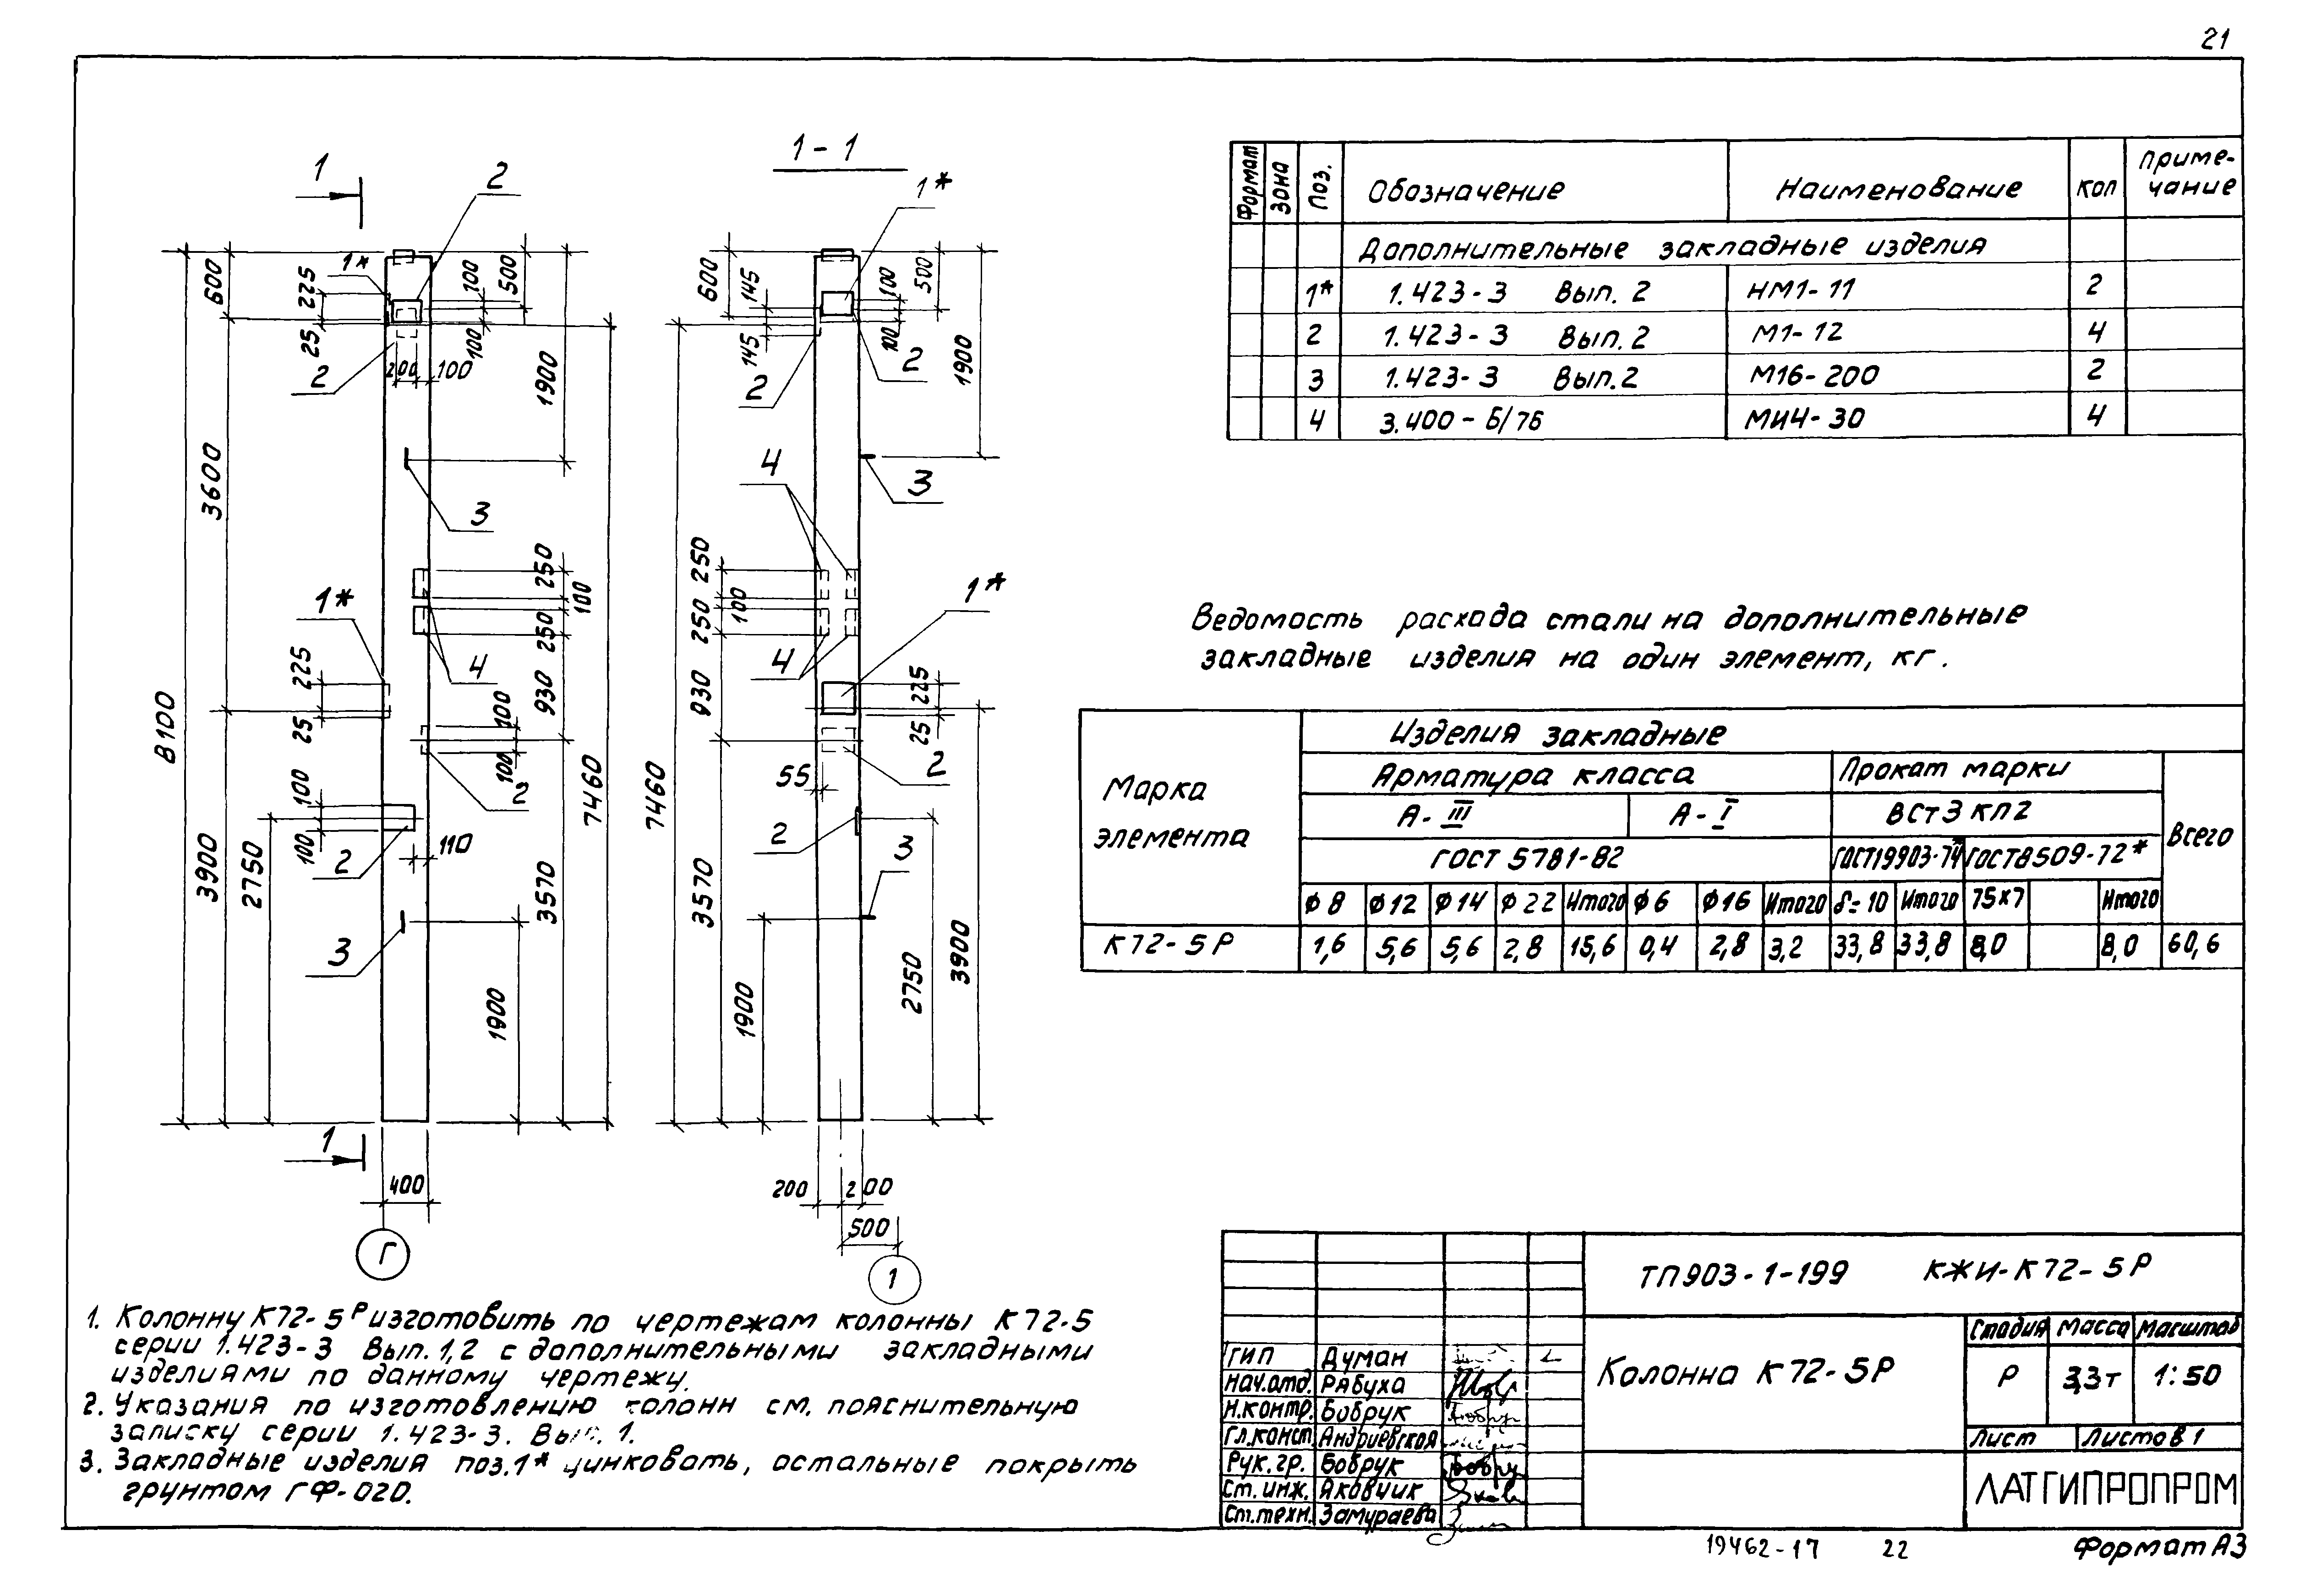 21
1
2
1*
600
225
25
100
500
100
2
200
100
1900
3600
3
250
100
250
1*
4
225
25
930
100
100
2
8100
100
100
2
110
3900
2750
3
7460
3570
1900
1
400
Г
1-1
1*
600
145
145
100
500
100
2
2
1900
4
3
250
100
250
1*
4
930
225
25
2
55
7460
2
3
3570
1900
2750
3900
200
200
500
1
Формат
Зона
Поз.
Обозначение
Наименование
Кол
Приме-
чание
Дополнительные закладные изделия
1* 1.423-3 Вып. 2 НМ1-11 2
2 1.423-3 Вып. 2 М1-12 4
3 1.423-3 Вып. 2 М16-200 2
4 3.400-6/76 МИ4-30 4
Ведомость расхода стали на дополнительные
закладные изделия на один элемент, кг.
Марка
элемента
Изделия закладные
Арматура класса
Прокат марки
А-III
А-I
ВСт3 кп2
Всего
ГОСТ 5781-82
ГОСТ19903-74*
ГОСТ8509-72*
ф8 ф12 ф14 ф22 Итого ф6 ф16 Итого δ=10 Итого 75х7 Итого
К72-5Р 1,6 5,6 5,6 2,8 15,6 0,4 2,8 3,2 33,8 33,8 8,0 8,0 60,6
1. Колонну К72-5Р изготовить по чертежам колонны К72-5
серии 1.423-3 Вып. 1,2 с дополнительными закладными
изделиями по данному чертежу.
2. Указания по изготовлению колонн см. пояснительную
записку серии 1.423-3. Вып. 1.
3. Закладные изделия поз.1* цинковать, остальные покрыть
грунтом ГФ-020.
ТП903-1-199 КЖИ-К72-5Р
Колонна К72-5Р
Стадия Масса Масштаб
Р 3,3т 1:50
Лист Листов 1
ЛАТГИПРОПРОМ
ГИП Думан
Нач.отд. Рябуха
Н.контр. Бобрук
Гл.конст. Андриевская
Рук.гр. Бобрук
Ст.инж. Яковчик
Ст.техн. Замураева
19462-17 22
Формат А3